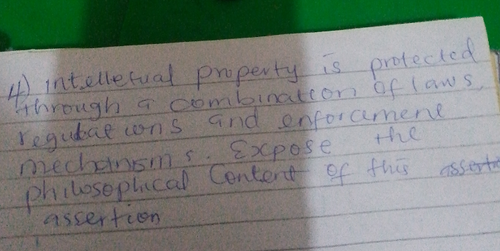 4) intelletual property is protected
through a combination of laws,
regulations and enforcement
mechanisms. Expose the
philosophical Content of this assertion
assertion